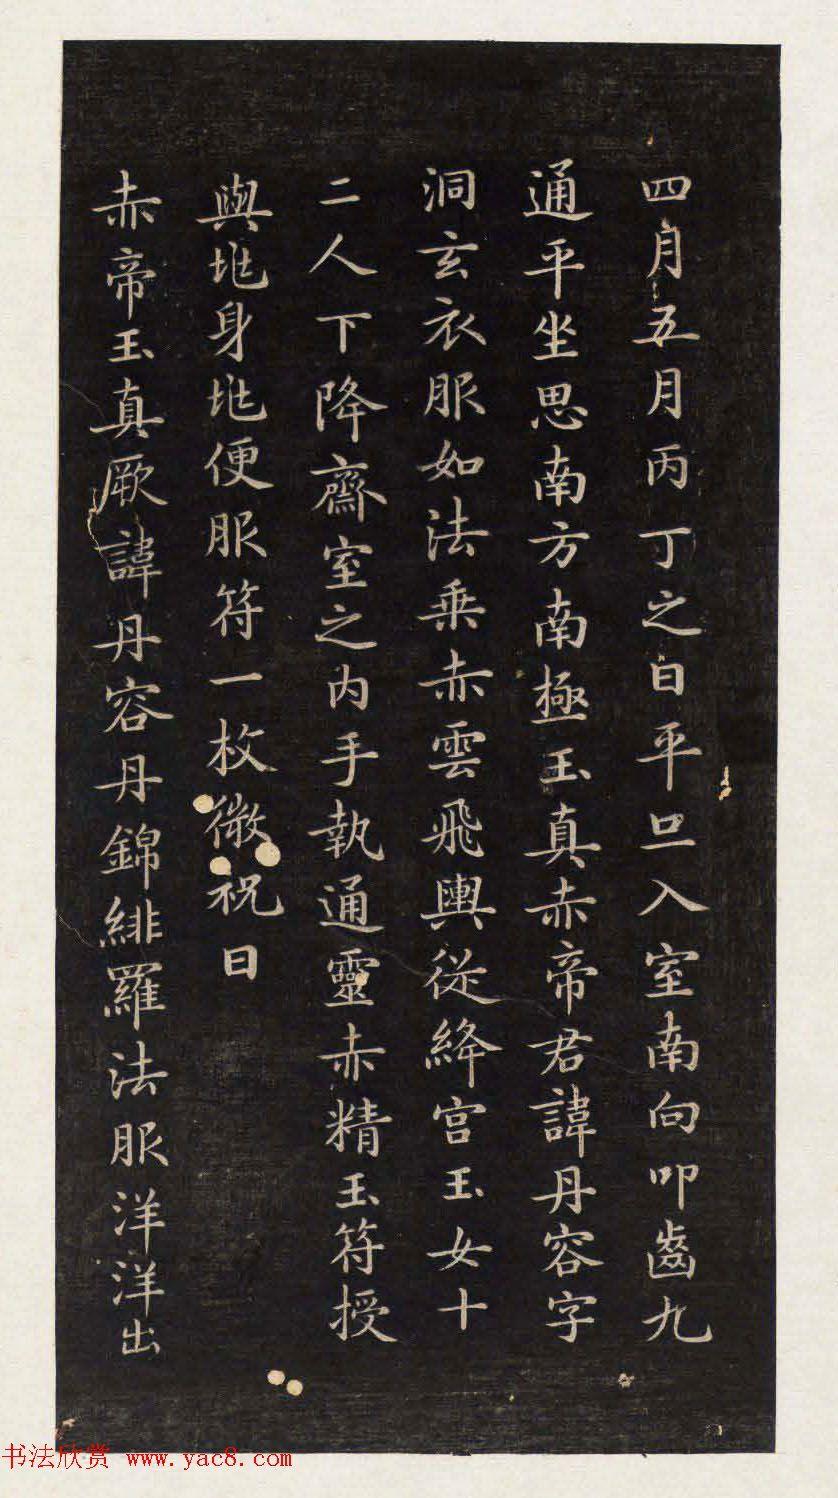 四月五月丙丁之日平旦入室南向叩齒九
通平坐思南方南極玉真赤帝君諱丹容字
洞玄衣服如法乗赤雲飛輿從絳宮玉女十
二人下降齋室之内手執通靈赤精玉符授
與地身地便服符一枚微祝曰
赤帝玉真厥諱丹容丹錦緋羅法服洋洋出
书法欣赏 www.yac8.com